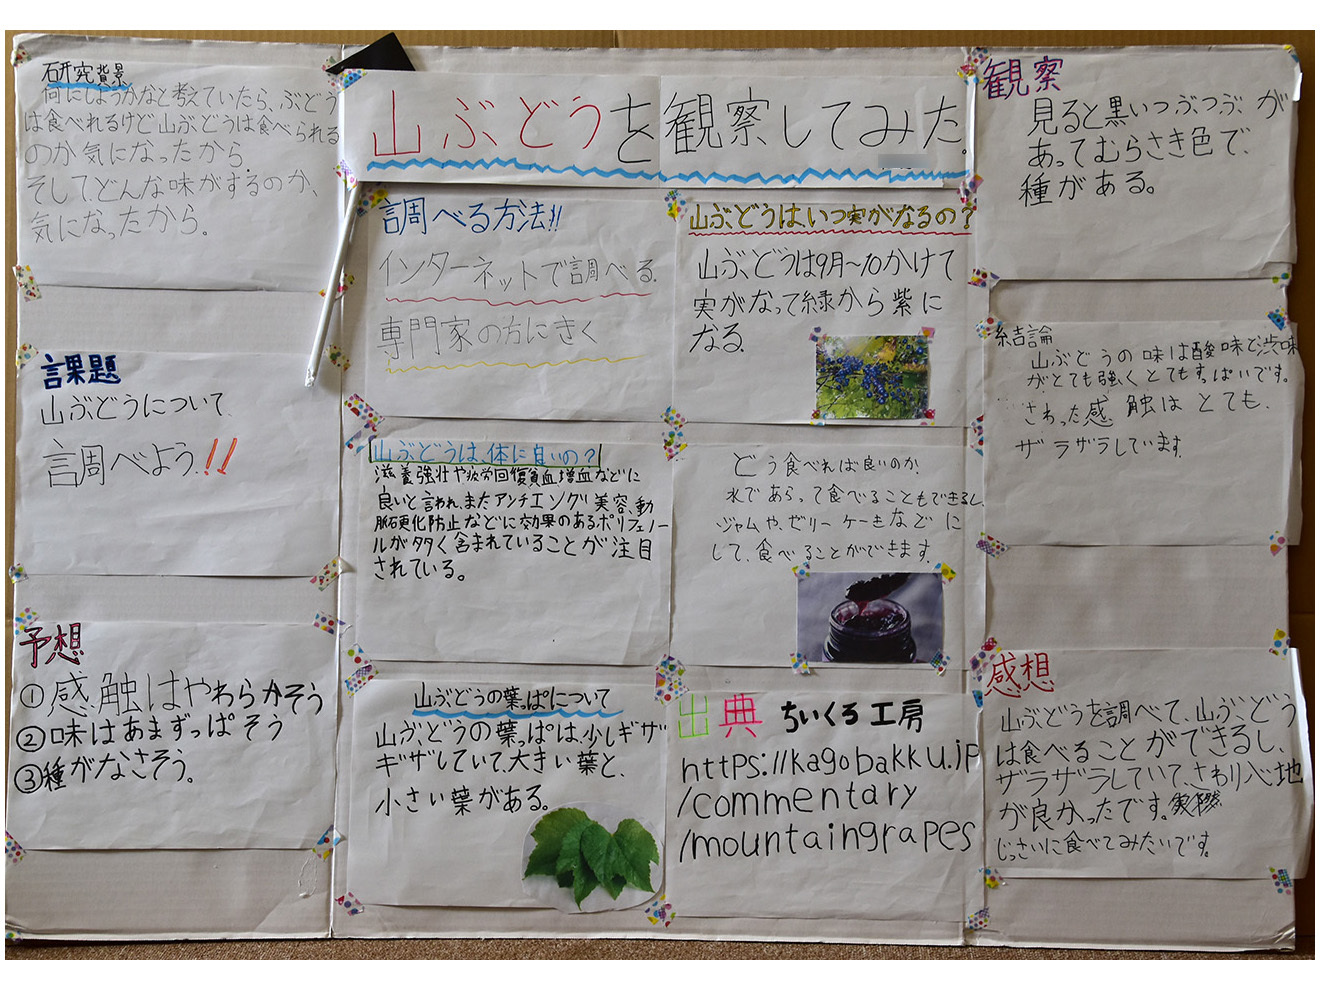 山ぶどうを観察してみた。
研究背景
何にしようかなと考えていたら、ぶどう
は食べれるけど山ぶどうは食べられる
のか気になったから。
そしてどんな味がするのか、
気になったから。
課題
山ぶどうについて
調べよう!!
予想
①感触はやわらかそう
②味はあまずっぱそう
③種がなさそう。
調べる方法!!
インターネットで調べる.
専門家の方にきく
山ぶどうは、体に良いの?
滋養強壮や疲労回復貧血増血などに
良いと言われ、またアンチエンング美容、動
脈硬化防止などに効果のあるポリフェノー
ルが多く含まれていることが注目
されている。
山ぶどうの葉っぱについて
山ぶどうの葉っぱは、少しギザ
ギザしていて、大きい葉と、
小さい葉がある。
山ぶどうは、いつ実がなるの?
山ぶどうは9月〜10かけて
実がなって緑から紫に
なる.
どう食べれば良いのか!
水であらって食べることもできるし、
ジャムや、ゼリー ケーキなどに
して、食べることができます.
出典 ちいくろ工房
https://kagobakku.jp
/commentary
/mountaingrapes
観察
見ると黒いつぶつぶが
あってむらさき色で、
種がある。
結論
山ぶどうの味は酸味と渋味
がとても強くとてもすっぱいです。
さわった感触はとても、
ザラザラしています.
感想
山ぶどうを調べて、山ぶどう
は食べることができるし、
ザラザラしていて、さわり心地
が良かったです。
じっさいに食べてみたいです。